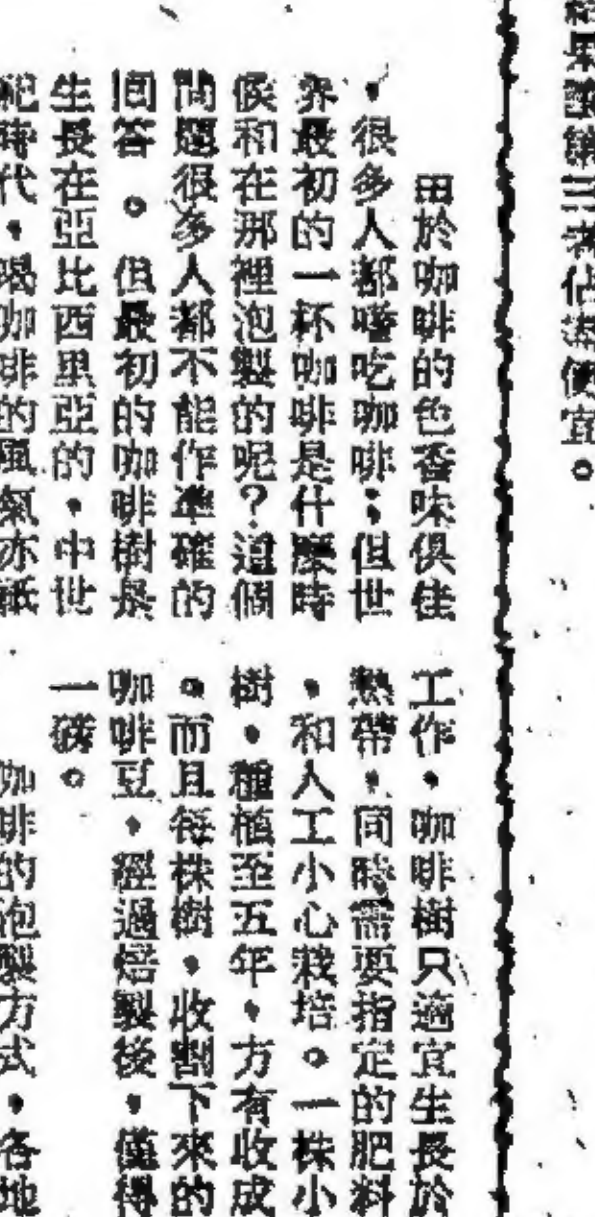 結果讓第三者佔盡便宜。
由於咖啡的色香味俱佳
，很多人都嗜吃咖啡；但世
界最初的一杯咖啡是什麼時
候和在那裡泡製的呢？這個
問題很多人都不能作準確的
回答。但最初的咖啡樹是
生長在亞比西里亞的，中世
紀時代，喝咖啡的風氣亦祇
工作，咖啡樹只適宜生長於
熱帶，同時需要指定的肥料
，和人工小心栽培。一株小
樹，種植至五年，方有收成
。而且每株樹，收割下來的
咖啡豆，經過焙製後，僅得
一磅。
咖啡的泡製方式，各地